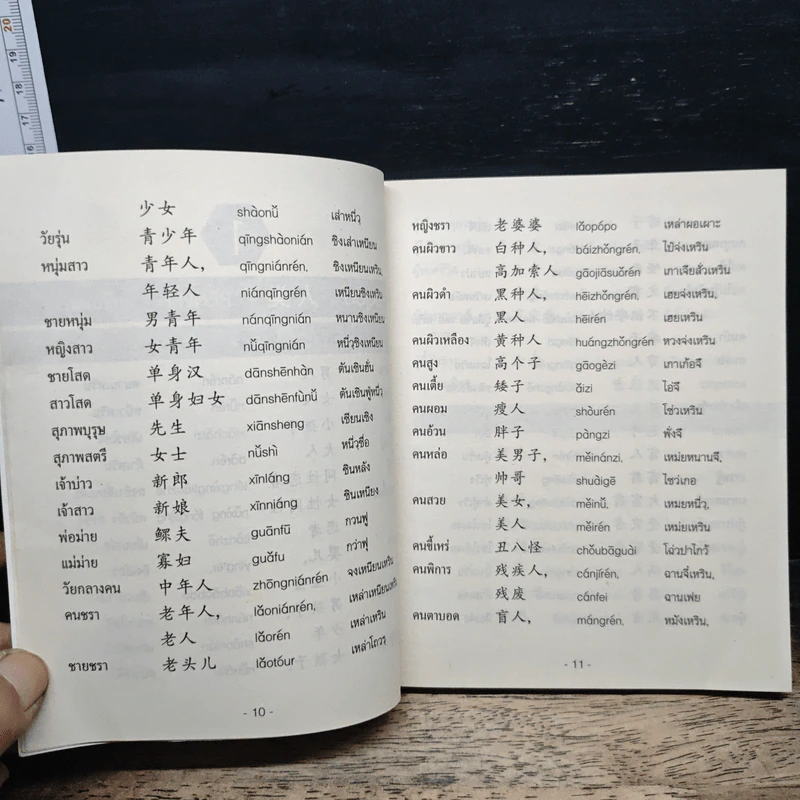 少女 shàonǚ เส่าหนี่ว
วัยรุ่น 青少年 qīngshàonián ชิงเส่าเหนียน
หนุ่มสาว 青年人, qīngniánrén, ชิงเหนียนเหริน,
年轻人 niánqīngrén เหนียนชิงเหริน
ชายหนุ่ม 男青年 nánqīngnián หนานชิงเหนียน
หญิงสาว 女青年 nǚqīngnián หนี่วชิงเหนียน
ชายโสด 单身汉 dānshēnhàn ตันเชินฮั่น
สาวโสด 单身妇女 dānshēnfùnǚ ตันเชินฟู่หนี่ว
สุภาพบุรุษ 先生 xiānsheng เซียนเชิง
สุภาพสตรี 女士 nǚshì หนี่วซื่อ
เจ้าบ่าว 新郎 xīnláng ซินหลัง
เจ้าสาว 新娘 xīnniáng ซินเหนียง
พ่อม่าย 鳏夫 guānfū กวนฟู
แม่ม่าย 寡妇 guǎfu กว่าฟุ
วัยกลางคน 中年人 zhōngniánrén จงเหนียนเหริน
คนชรา 老年人, lǎoniánrén, เหล่าเหนียนเหริน
老人 lǎorén เหล่าเหริน
ชายชรา 老头儿 lǎotóur เหล่าโถวรุ
- 10 -
หญิงชรา 老婆婆 lǎopópo เหล่าผอเผาะ
คนผิวขาว 白种人, báizhǒngrén, ไป๋จ่งเหริน
高加索人 gāojiāsuǒrén เกาเจียสั่วเหริน
คนผิวดำ 黑种人, hēizhǒngrén, เฮยจ่งเหริน,
黑人 hēirén เฮยเหริน
คนผิวเหลือง 黄种人 huángzhǒngrén หวงจ่งเหริน
คนสูง 高个子 gāogèzi เกาเก้อจึ
คนเตี้ย 矮子 ǎizi ไอ่จึ
คนผอม 瘦人 shòurén โซ่วเหริน
คนอ้วน 胖子 pàngzi พั่งจึ
คนหล่อ 美男子, měinánzi, เหม่ยหนานจึ,
帅哥 shuàigē ไซว่เกอ
คนสวย 美女, měinǚ, เหมยหนี่ว,
美人 měirén เหม่ยเหริน
คนขี้เหร่ 丑八怪 chǒubāguài โฉ่วปาไกว้
คนพิการ 残疾人, cánjírén, ฉานจี๋เหริน,
残废 cánfei ฉานเฟ่ย
คนตาบอด 盲人, mángrén, หมังเหริน,
- 11 -